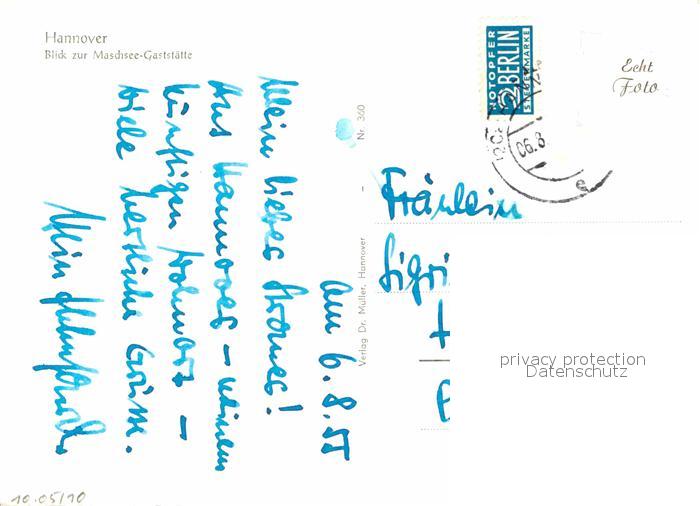 Hannover
Blick zur Maschsee-Gaststätte
am 6.8.55
Mein liebes
Aus Hannover – meinem
künftigen Wohnort –
viele herzliche Grüsse.
Mein
Nr. 360
Verlag Dr. Müller, Hannover
NOTOPFER
2 BERLIN
STEUERMARKE
06.8.
Echt
Foto
Fräulein
Sigri
privacy protection
Datenschutz
10.05/10